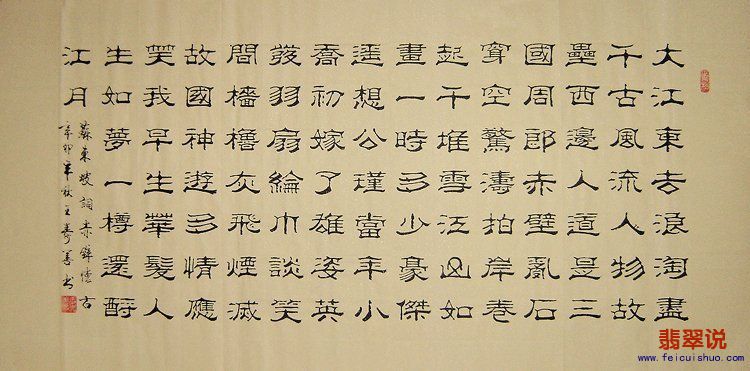 大江東去浪淘盡
千古風流人物故
壘西邊人道是三
國周郎赤壁亂石
穿空驚濤拍岸卷
起千堆雪江山如
畫一時多少豪傑
遙想公瑾當年小
喬初嫁了雄姿英
發羽扇綸巾談笑
間檣櫓灰飛煙滅
故國神遊多情應
笑我早生華髮人
生如夢一樽還酹
江月
蘇東坡詞赤壁懷古
辛卯年秋王壽善書
翡翠说
www.feicuishuo.com